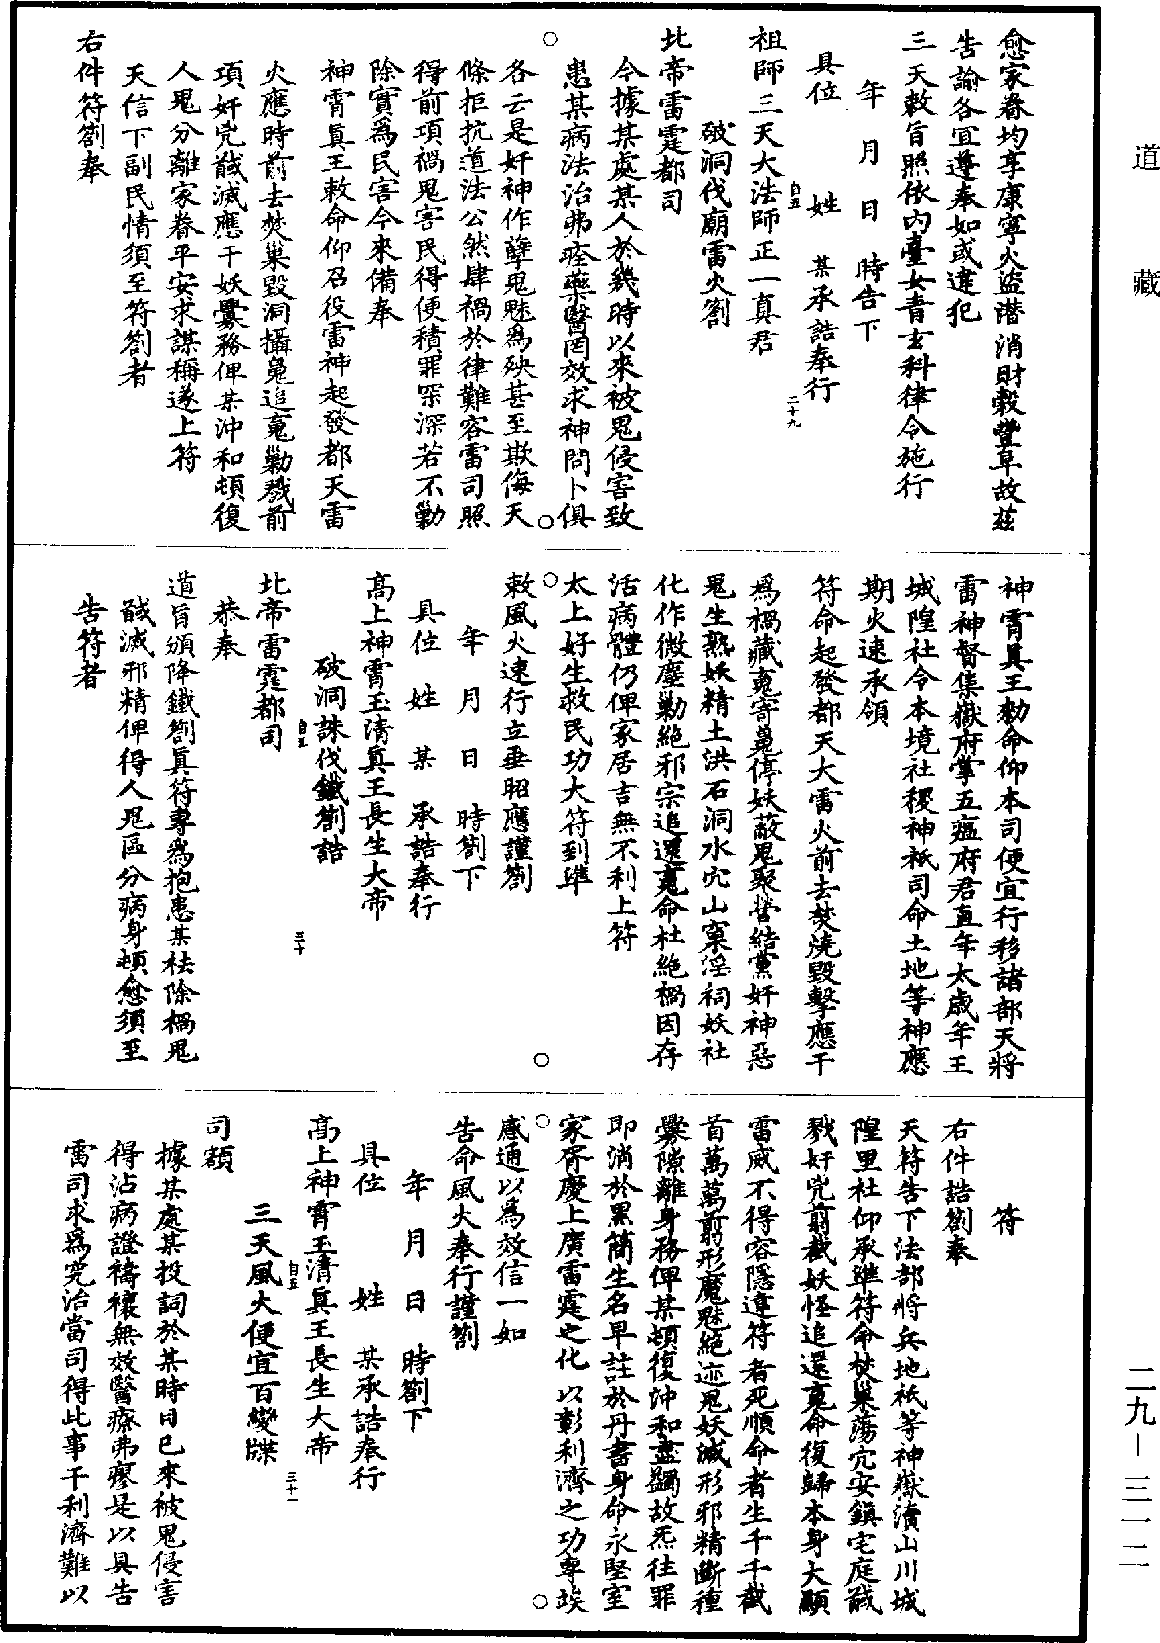 道藏
愈家眷均享康寧火盜潛消財穀豐阜故茲
告諭各宜遵奉如或違犯
三天敕旨照依內臺女青玄科律令施行
年　月　日　時告下
具位　　姓　某承誥奉行
二十九
祖師三天大法師正一真君
自五
破洞伐廟雷火劄
北帝雷霆都司
今據某處某人於幾時以來被鬼侵害致
患某病法治弗痊藥醫罔效求神問卜俱
各云是奸神作孽鬼魅為殃甚至欺侮天
條拒抗道法公然肆禍於律難容雷司照
得前項禍鬼害民得便積罪罙深若不勦
除實為民害今來備奉
神霄真王敕命仰召役雷神起發都天雷
火應時前去焚巢毀洞攝㲋追䰟勦戮前
項奸兇馘滅應干妖釁務俾某沖和頓復
人鬼分離家眷平安求謀稱遂上符
天信下副民情須至符劄者
右件符劄奉
神霄真王勅命仰本司便宜行移諸部天將
雷神督集嶽府掌五瘟府君直年太歲年王
城隍社令本境社稷神祇司命土地等神應
期火速承領
符命起發都天大雷火前去焚燒毀擊應干
為禍藏䰟寄㲋停妖蔽鬼聚營結黨奸神惡
鬼生熟妖精土洪石洞水穴山窠淫祠妖社
化作微塵勦絕邪宗追還䰟命杜絕禍因存
活病體仍俾家居吉無不利上符
太上好生救民功大符到準
敕風火速行立垂昭應謹劄
年　月　日　時劄下
具位　姓　某　承誥奉行
高上神霄玉清真王長生大帝
三十
自五
破洞誅伐鐵劄誥
北帝雷霆都司
恭奉
道旨頒降鐵劄真符專為抱患某祛除禍鬼
馘滅邪精俾得人鬼區分病身頓愈須至
告符者
符
右件誥劄奉
天符告下法部將兵地祇等神嶽瀆山川城
隍里社仰承準符命燓巢蕩穴安鎮宅庭馘
戮奸兇剪截妖怪追還䰟命復歸本身大顯
雷威不得容隱違符者死順命者生千千截
首萬萬剪形魔魅絕迹鬼妖滅形邪精斷種
釁隙離身務俾某頓復沖和盡蠲故炁往罪
即消於黑簡生名早註於丹書身命永堅室
家胥慶上廣雷霆之化以彰利濟之功專竢
感通以為效信一如
告命風火奉行謹劄
年　月　日　時劄下
具位　　姓　某承誥奉行
高上神霄玉清真王長生大帝
三十一
自五
三天風火便宜百變牒
司額
據某處某投詞於某時日已來被鬼侵害
得沾病證禱禳無效醫療弗瘳是以具告
雷司求為究治當司得此事干利濟難以
二九－三一二